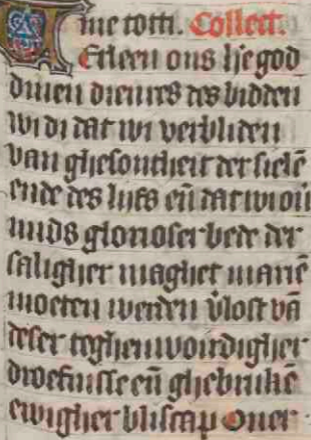 me totti. Collect.
Erleen ons h’e god
dinen dienres des bidden
wi di dat wi verbliden
van ghesontheit der sielē
ende des lijfs eñ dat wi oū
mids glorioser bede der
saligher maghet mariē
moeten werden v̓lost vā
deser teghenwoirdigher
droefnisse eñ ghebrukē
ewigher bliscap Ouer